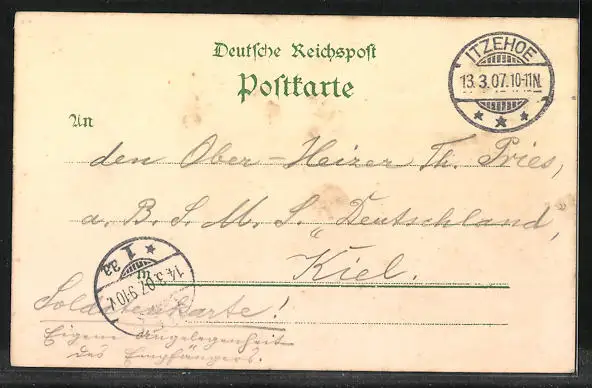 Deutsche Reichspost
Postkarte
ITZEHOE
13.3.07.10-11N.
* * *
An
den Ober-Heizer Th. Pries,
a. B. S. M. S. „Deutschland,"
Kiel.
* 1 aa
14.3.07.9-10V.
Soldatenkarte!
Eigene Angelegenheit
des Empfängers.